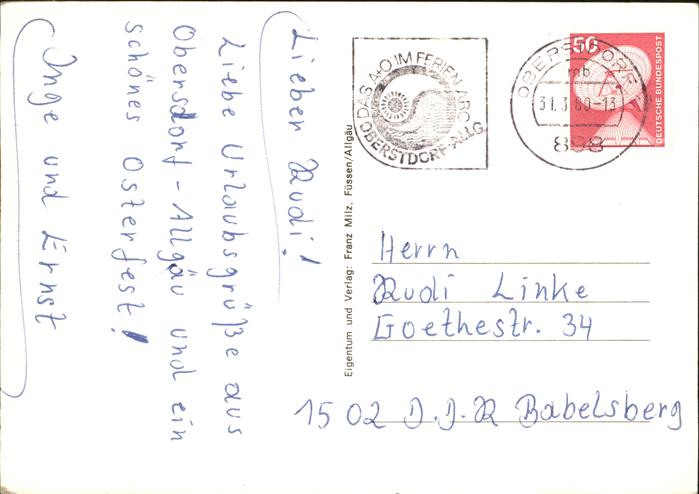 Lieber Rudi!
Liebe Urlaubsgrüße aus
Obersdorf - Allgäu und ein
schönes Osterfest!
Inge und Ernst
Eigentum und Verlag: Franz Milz, Füssen/Allgäu
DAS A+O IM FERIEN ABC
OBERSTDORF-ALLG.
OBERSTDORF
mb
31.3.80-13
898
50
DEUTSCHE BUNDESPOST
Herrn
Rudi Linke
Goethestr. 34
1502 D.D.R Babelsberg